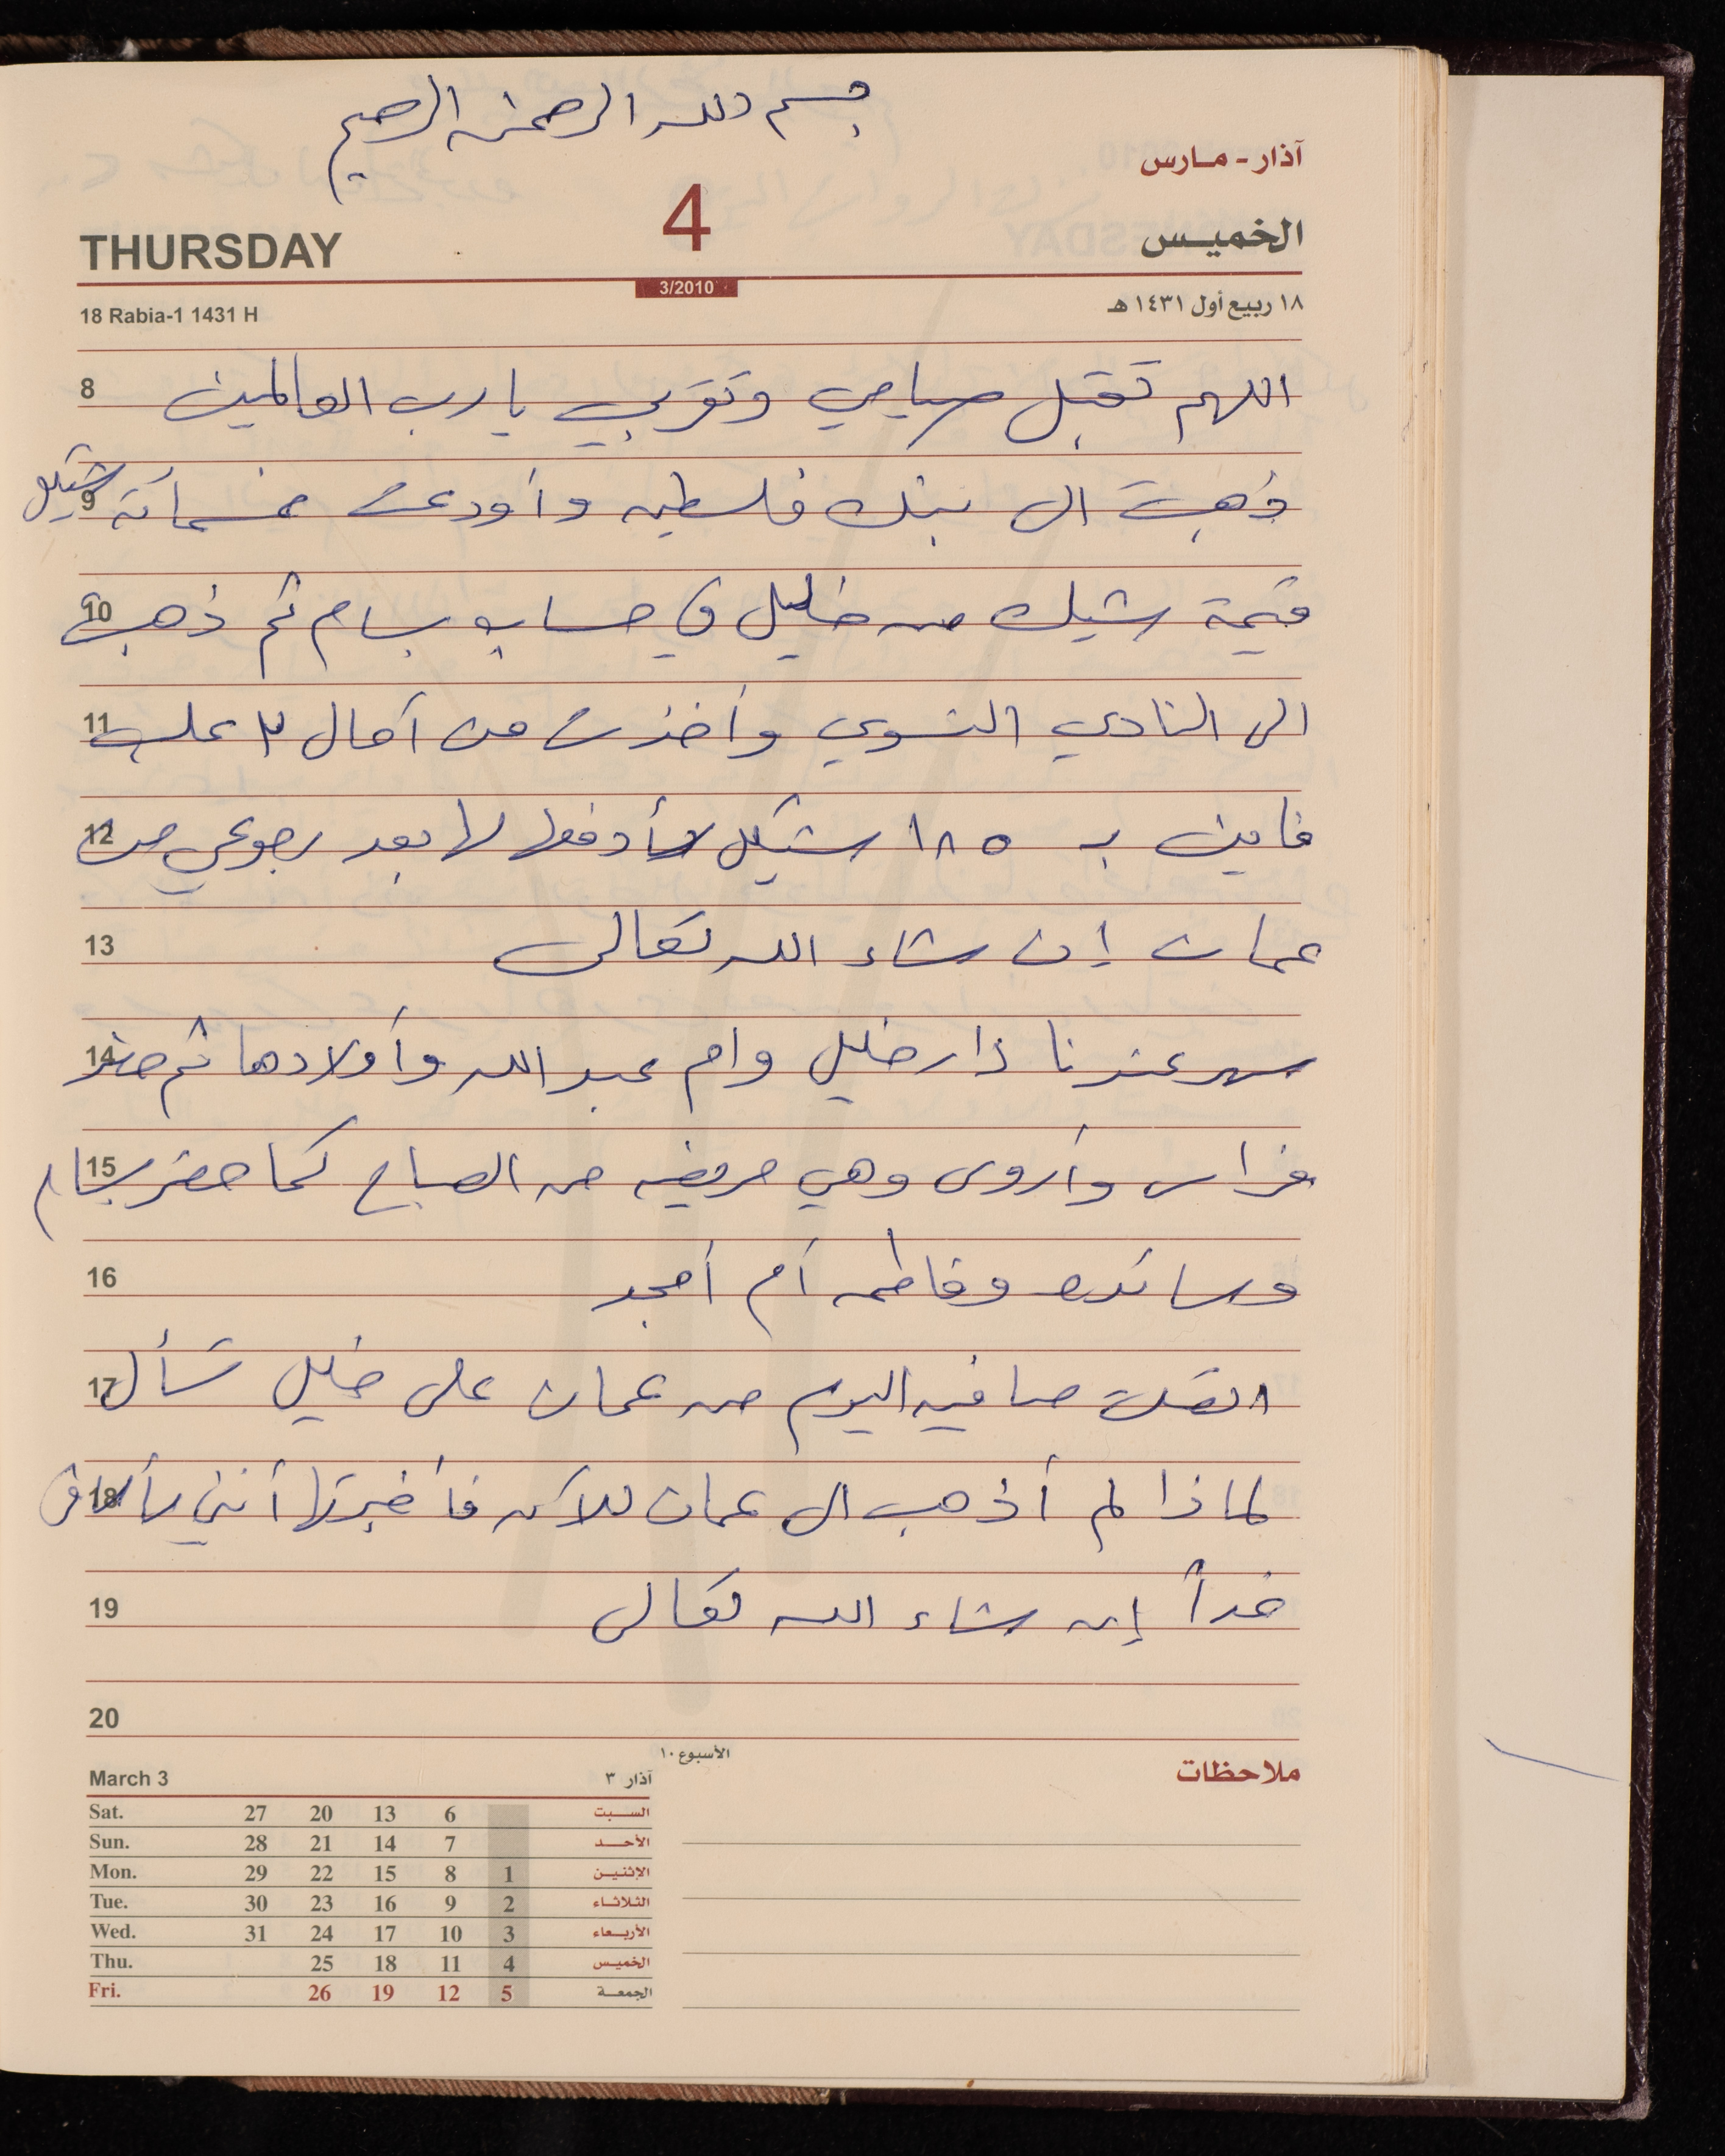 بسم الله الرحمن الرحيم
آذار - مارس
THURSDAY 4 الخميس
3/2010
18 Rabia-1 1431 H ١٨ ربيع أول ١٤٣١ هـ
8 اللهم تقبل صيامي وتقربي يا رب العالمين
9 ذهبت الى بنك فلسطين وأودعت خمسمائة شيكل
10 قيمة شيك من خليل في حساب بسام ثم ذهبت
11 الى النادي النسوي وأخذت من آمال ٣ علب
12 فاين بـ ١٨٥ شيكل لأدفعها لها بعد رجوعي من
13 عمان إن شاء الله تعالى
14 سهر عندنا دار خليل وام عبد الله وأولادها ثم حضر
15 فراس وأروى وهي مريضه من الصباح كما حضر بسام
16 وسائده وفاطمه أم أمجد
17 اتصلت صافيه اليوم من عمان على خليل تسأل
18 لماذا لم أذهب الى عمان للآن فأخبرتها أنني سأسافر
19 غداً إن شاء الله تعالى
20
الأسبوع ١٠
ملاحظات
March 3 آذار ٣
Sat. 27 20 13 6 السبت
Sun. 28 21 14 7 الأحد
Mon. 29 22 15 8 1 الإثنين
Tue. 30 23 16 9 2 الثلاثاء
Wed. 31 24 17 10 3 الأربعاء
Thu. 25 18 11 4 الخميس
Fri. 26 19 12 5 الجمعة